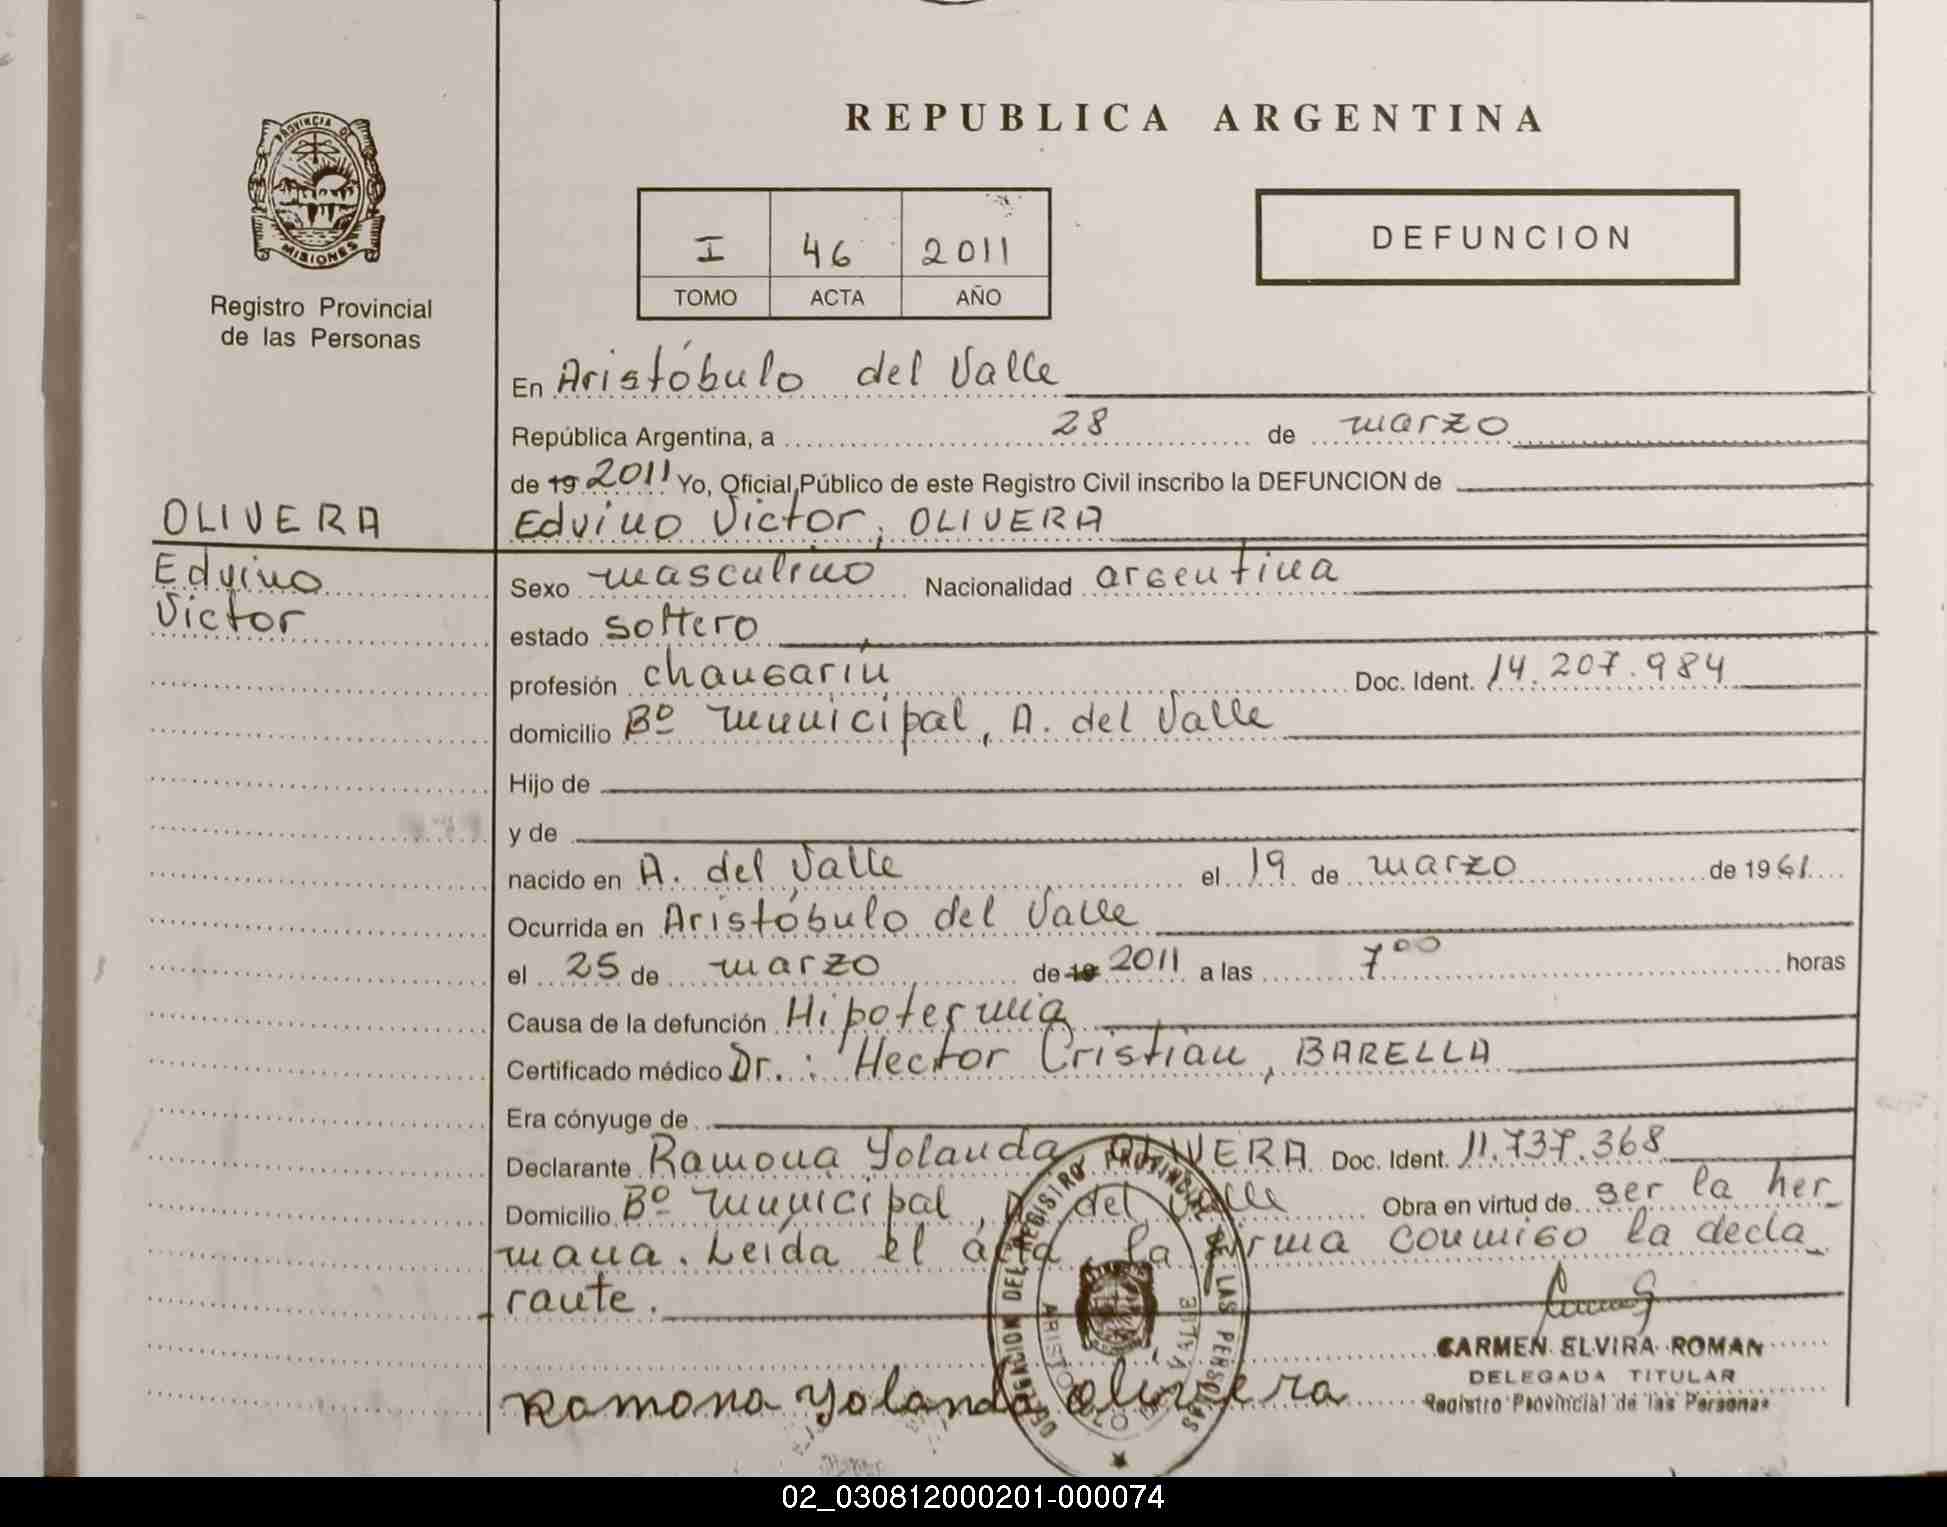 REPUBLICA ARGENTINA
PROVINCIA DE
MISIONES
Registro Provincial
de las Personas
I 46 2011
TOMO ACTA AÑO
DEFUNCION
En Aristóbulo del Valle
República Argentina, a 28 de marzo
de 19 2011 Yo, Oficial Público de este Registro Civil inscribo la DEFUNCION de
OLIVERA
Edvino Victor, OLIVERA
Edvino
Victor
Sexo masculino Nacionalidad argentina
estado soltero
profesión changarín Doc. Ident. 14.207.984
domicilio Bº Municipal, A. del Valle
Hijo de
y de
nacido en A. del Valle el 19 de marzo de 1961
Ocurrida en Aristóbulo del Valle
el 25 de marzo de 19 2011 a las 7⁰⁰ horas
Causa de la defunción Hipotermia
Certificado médico Dr.: Hector Cristian, BARELLA
Era cónyuge de
Declarante Ramona Yolanda OLIVERA Doc. Ident. 11.737.368
Domicilio Bº Municipal, A. del Valle Obra en virtud de ser la her-
mana. Leída el acta, la firma conmigo la decla-
rante.
DELEGACION DEL REGISTRO PROVINCIAL DE LAS PERSONAS
CARMEN ELVIRA ROMAN
DELEGADA TITULAR
Registro Provincial de las Personas
Ramona Yolanda Olivera
02_030812000201-000074